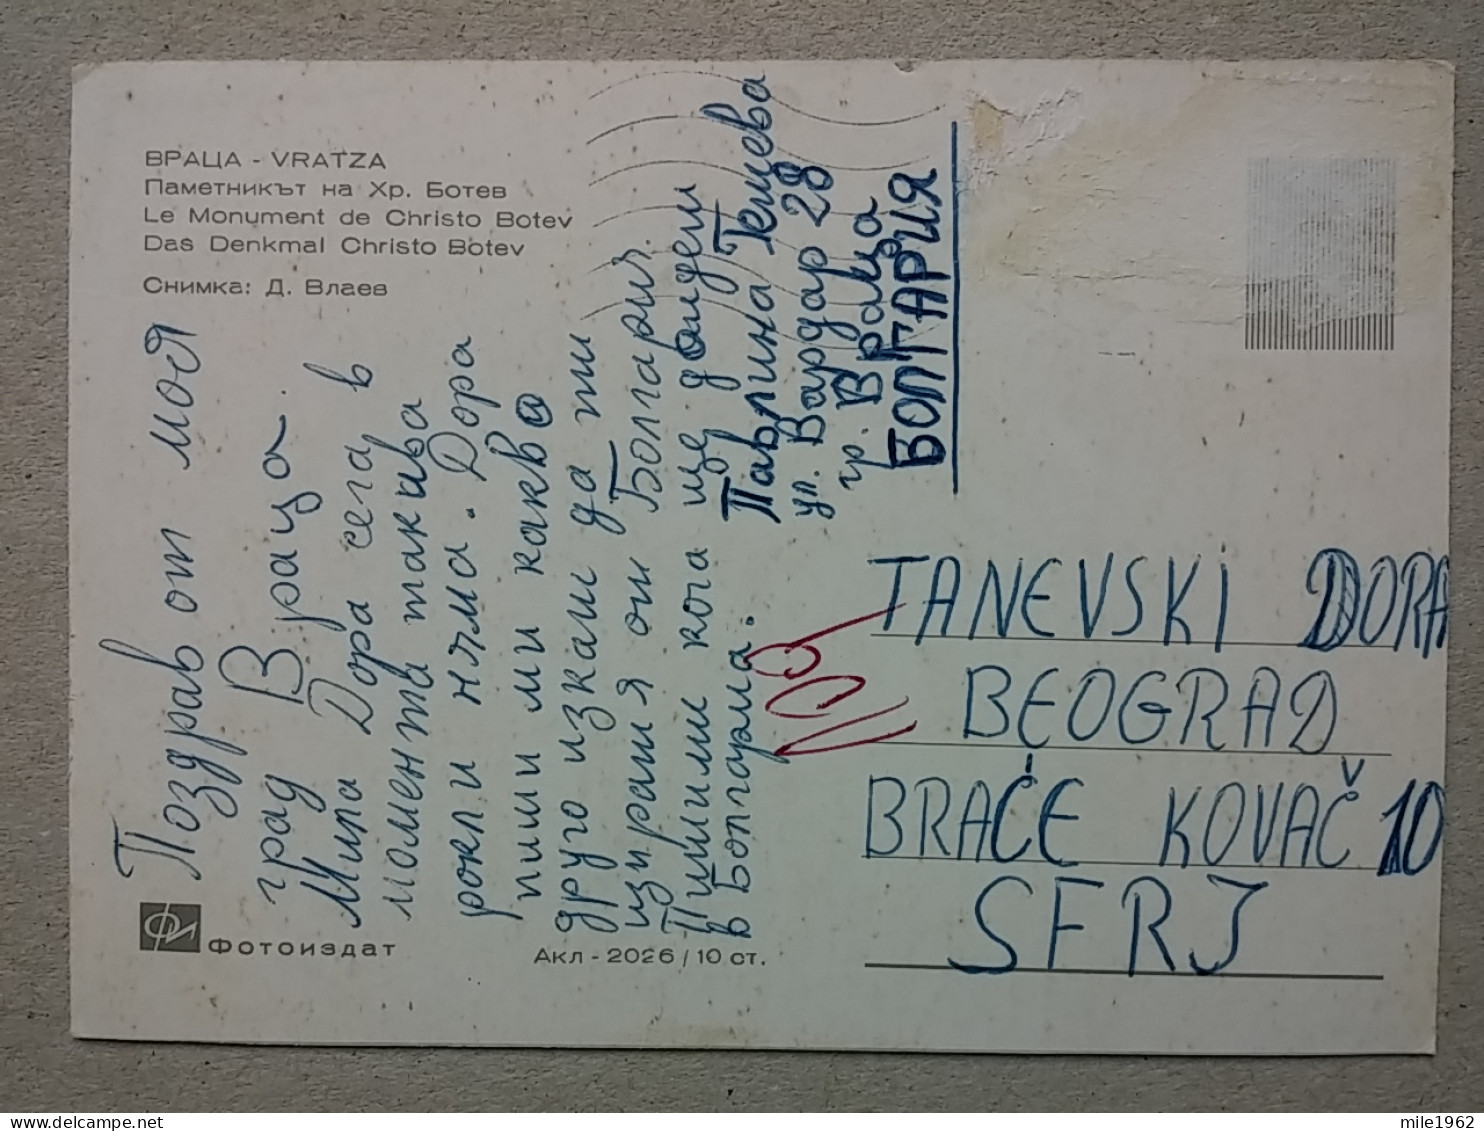 ВРАЦА - VRATZA
Паметникът на Хр. Ботев
Le Monument de Christo Botev
Das Denkmal Christo Botev
Снимка: Д. Влаев
Поздрав от моя
град Враца.
Мила Дора сега в
момента такива
рокли няма. Дора
пиши ми какво
друго искаш да ти
изпратя от Болгария.
Пиши ми кога ще дойдеш
в Болгария.
Павлина Гешева
ул. Вардар 28
гр. Враца
БОЛГАРИЯ
TANEVSKI DORA
BEOGRAD
BRAĆE KOVAČ 10
SFRJ
ФИ Фотоиздат
Акл - 2026 / 10 ст.
mile1962